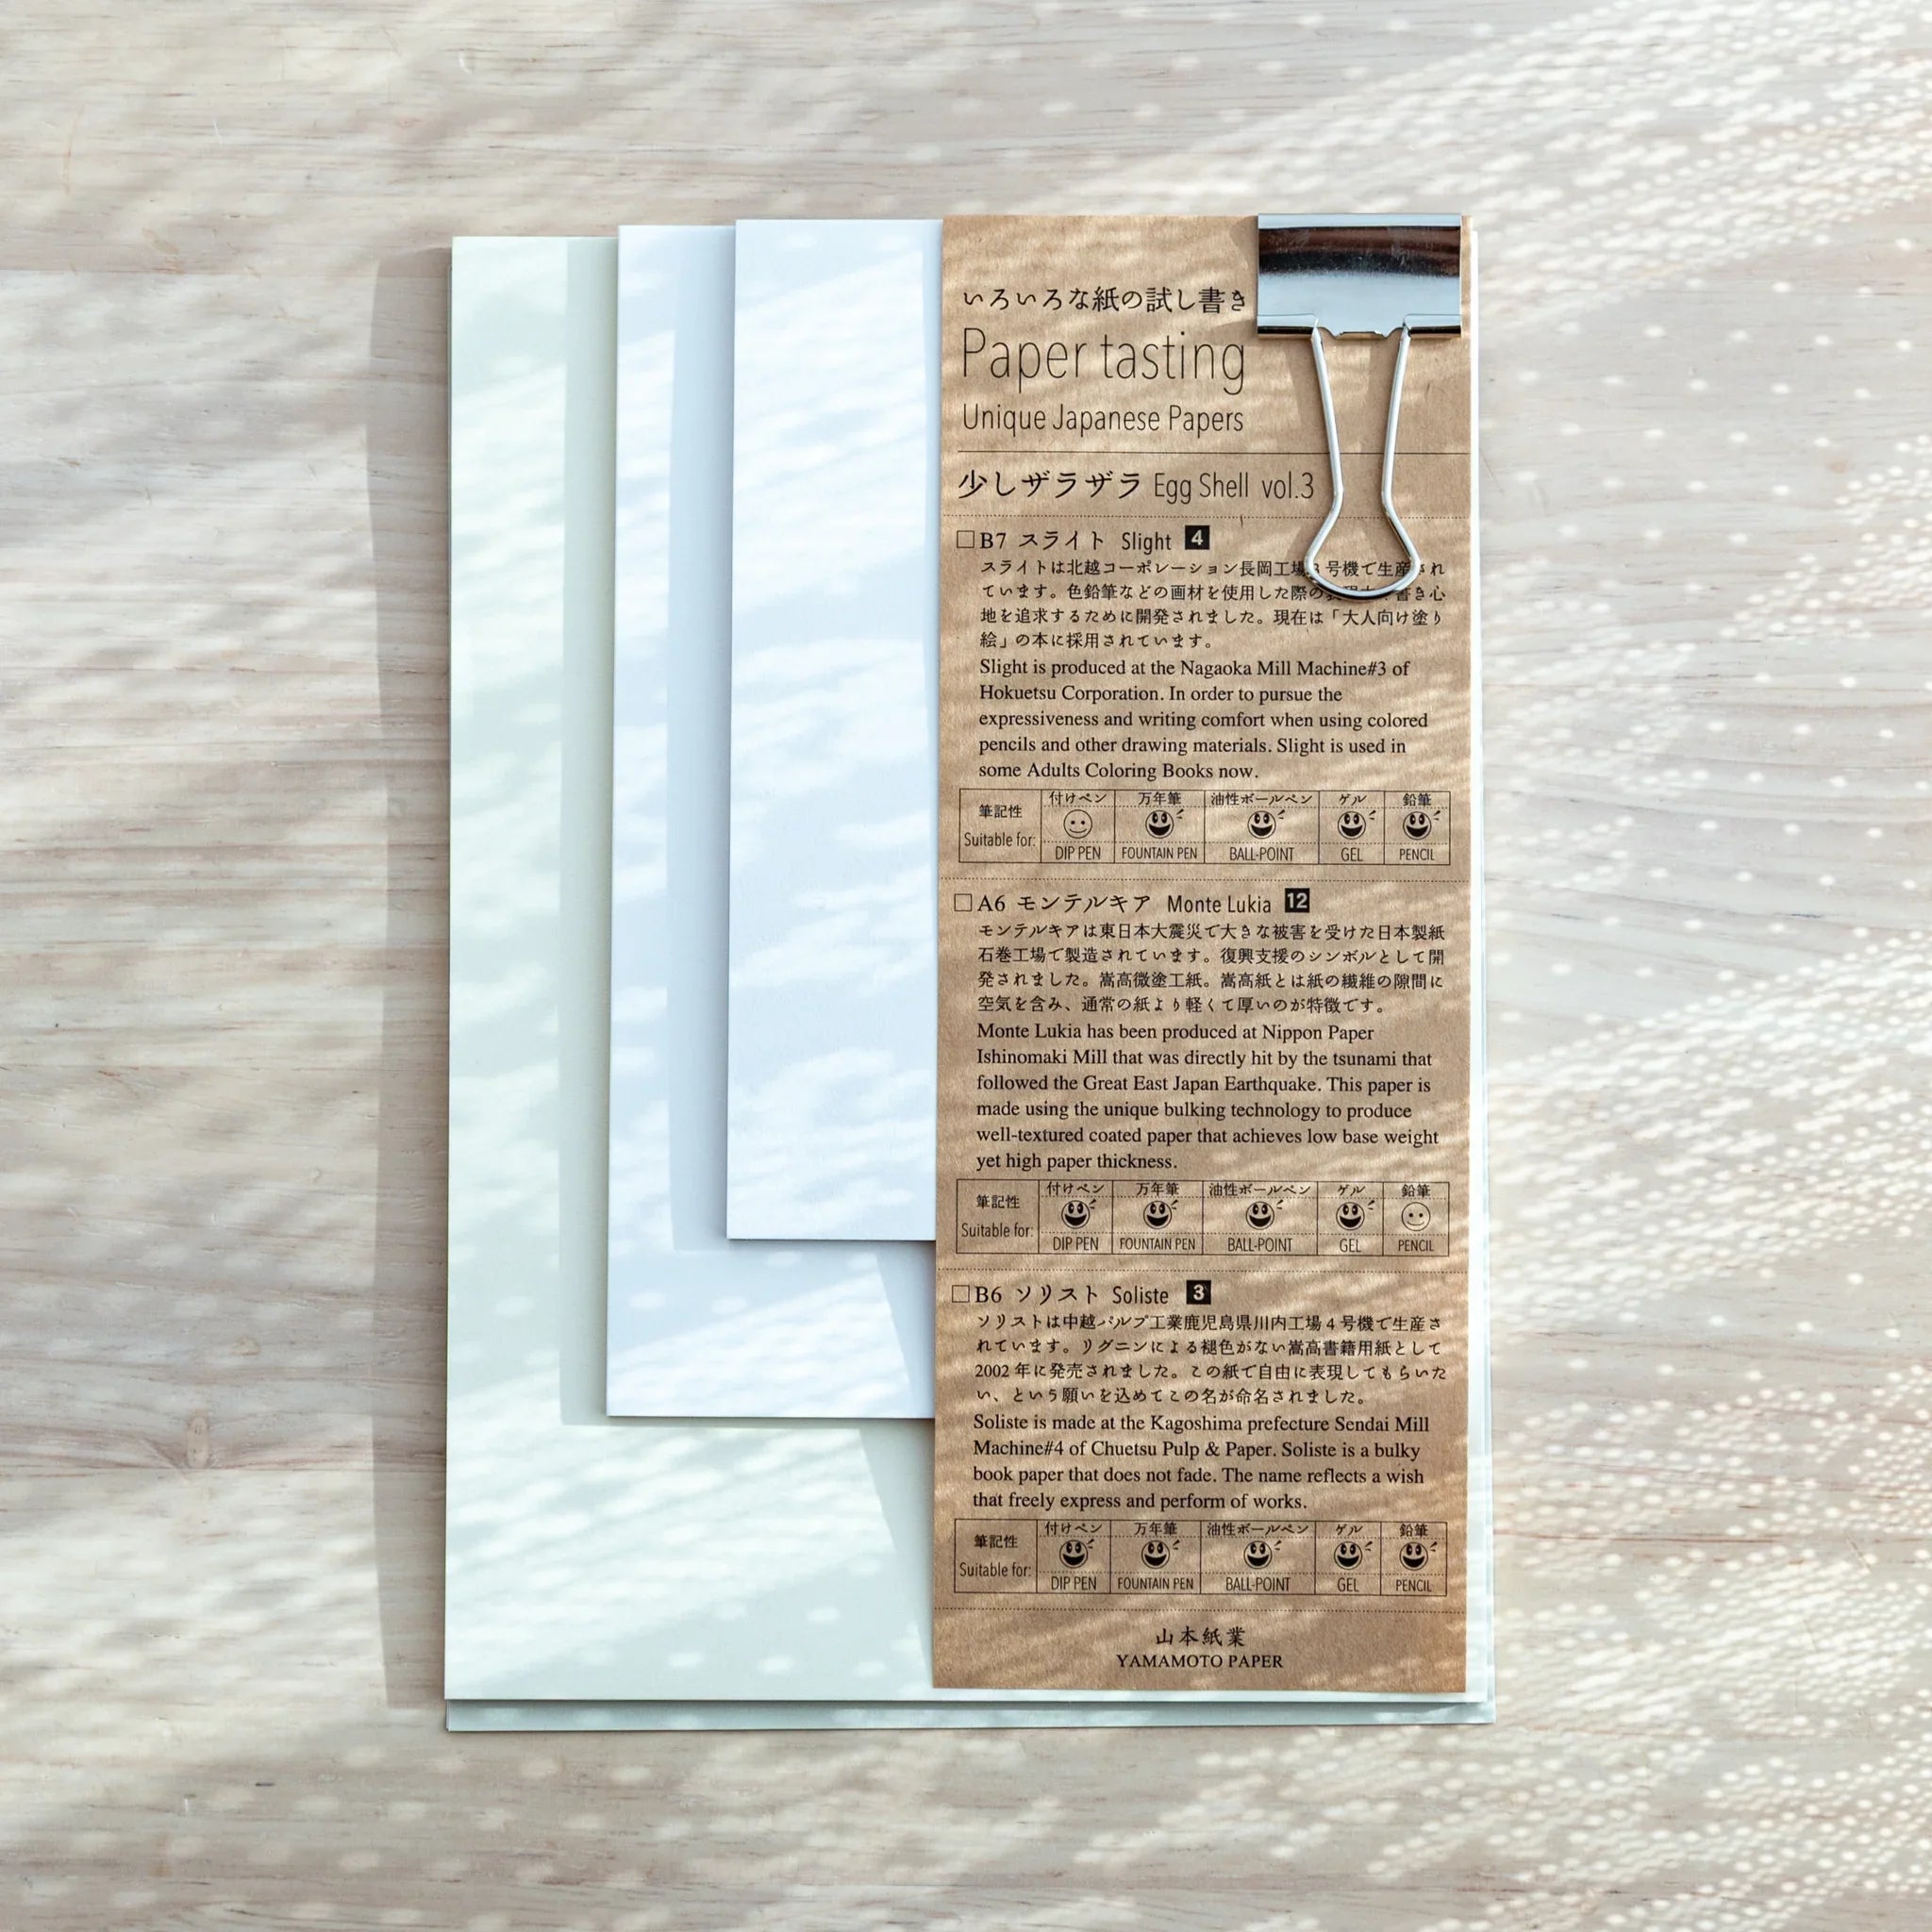 いろいろな紙の試し書き
Paper tasting
Unique Japanese Papers
少しザラザラ Egg Shell vol.3
□B7 スライト Slight 4
スライトは北越コーポレーション長岡工場 号機で生産され
ています。色鉛筆などの画材を使用した際の 書き心
地を追求するために開発されました。現在は「大人向け塗り
絵」の本に採用されています。
Slight is produced at the Nagaoka Mill Machine#3 of
Hokuetsu Corporation. In order to pursue the
expressiveness and writing comfort when using colored
pencils and other drawing materials. Slight is used in
some Adults Coloring Books now.
筆記性 付けペン 万年筆 油性ボールペン ゲル 鉛筆
Suitable for: DIP PEN FOUNTAIN PEN BALL-POINT GEL PENCIL
□A6 モンテルキア Monte Lukia 12
モンテルキアは東日本大震災で大きな被害を受けた日本製紙
石巻工場で製造されています。復興支援のシンボルとして開
発されました。嵩高微塗工紙。嵩高紙とは紙の繊維の隙間に
空気を含み、通常の紙より軽くて厚いのが特徴です。
Monte Lukia has been produced at Nippon Paper
Ishinomaki Mill that was directly hit by the tsunami that
followed the Great East Japan Earthquake. This paper is
made using the unique bulking technology to produce
well-textured coated paper that achieves low base weight
yet high paper thickness.
筆記性 付けペン 万年筆 油性ボールペン ゲル 鉛筆
Suitable for: DIP PEN FOUNTAIN PEN BALL-POINT GEL PENCIL
□B6 ソリスト Soliste 3
ソリストは中越パルプ工業鹿児島県川内工場4号機で生産さ
れています。リグニンによる褪色がない嵩高書籍用紙として
2002年に発売されました。この紙で自由に表現してもらいた
い、という願いを込めてこの名が命名されました。
Soliste is made at the Kagoshima prefecture Sendai Mill
Machine#4 of Chuetsu Pulp & Paper. Soliste is a bulky
book paper that does not fade. The name reflects a wish
that freely express and perform of works.
筆記性 付けペン 万年筆 油性ボールペン ゲル 鉛筆
Suitable for: DIP PEN FOUNTAIN PEN BALL-POINT GEL PENCIL
山本紙業
YAMAMOTO PAPER